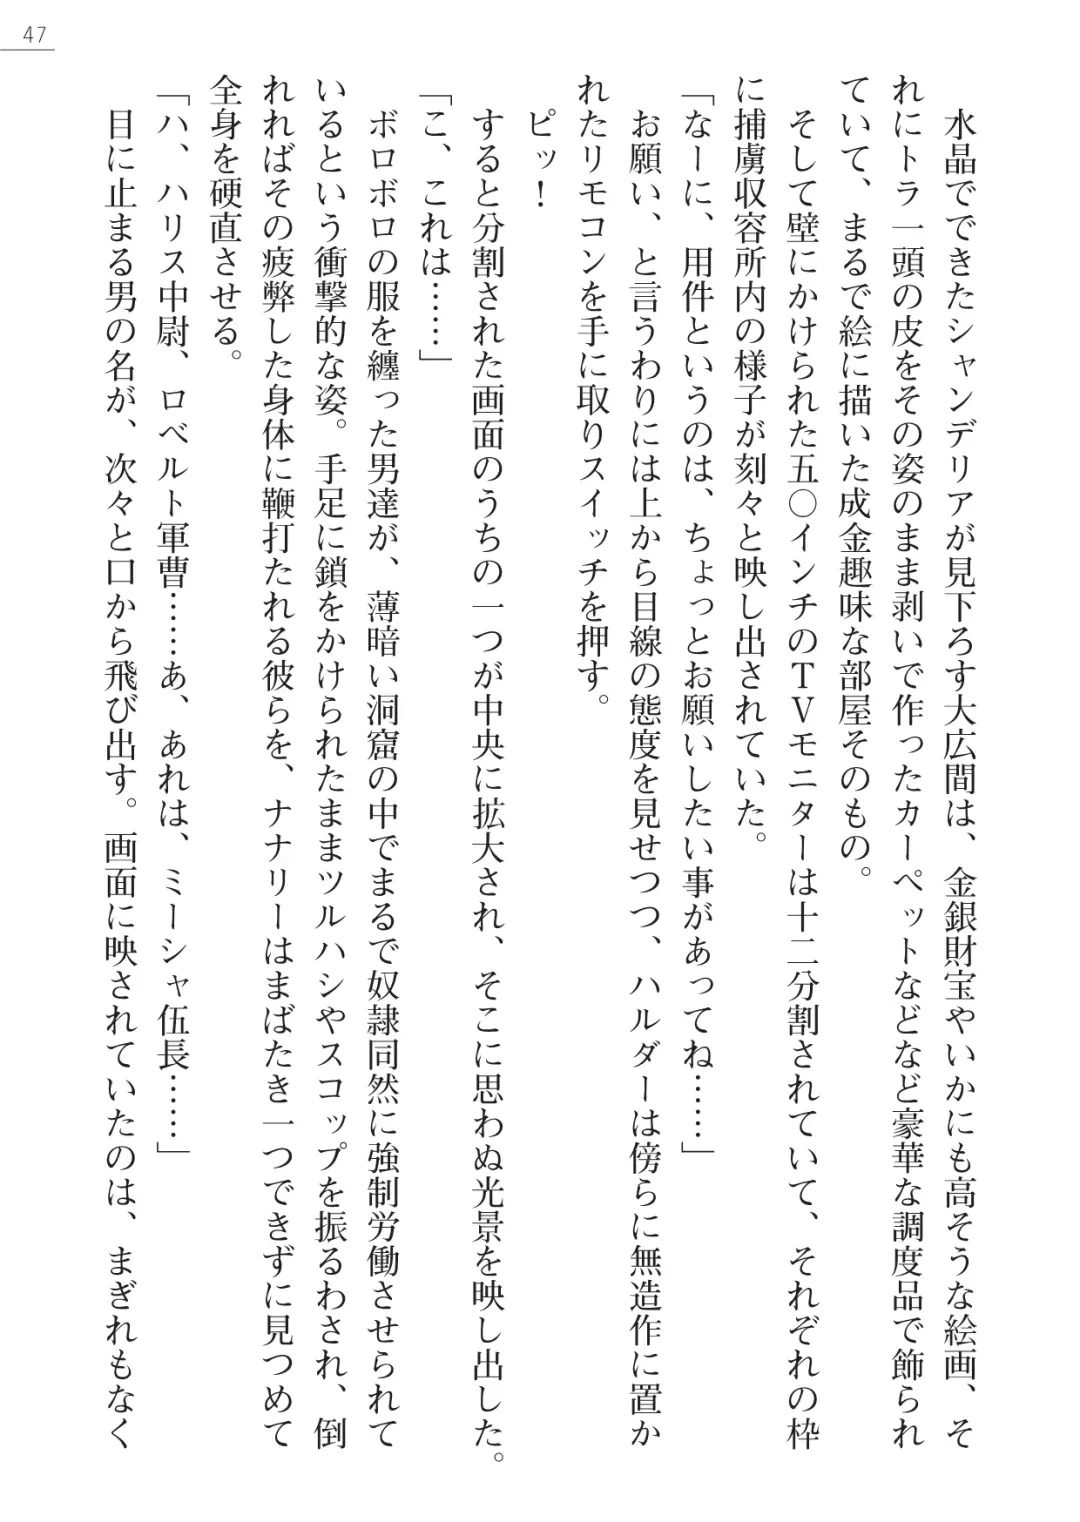 47
水晶でできたシャンデリアが見下ろす大広間は、金銀財宝やいかにも高そうな絵画、そ
れにトラ一頭の皮をその姿のまま剥いで作ったカーペットなどなど豪華な調度品で飾られ
ていて、まるで絵に描いた成金趣味な部屋そのもの。
そして壁にかけられた五〇インチのＴＶモニターは十二分割されていて、それぞれの枠
に捕虜収容所内の様子が刻々と映し出されていた。
「なーに、用件というのは、ちょっとお願いしたい事があってね……」
お願い、と言うわりには上から目線の態度を見せつつ、ハルダーは傍らに無造作に置か
れたリモコンを手に取りスイッチを押す。
ピッ！
すると分割された画面のうちの一つが中央に拡大され、そこに思わぬ光景を映し出した。
「こ、これは……」
ボロボロの服を纏った男達が、薄暗い洞窟の中でまるで奴隷同然に強制労働させられて
いるという衝撃的な姿。手足に鎖をかけられたままツルハシやスコップを振るわされ、倒
れればその疲弊した身体に鞭打たれる彼らを、ナナリーはまばたき一つできずに見つめて
全身を硬直させる。
「ハ、ハリス中尉、ロベルト軍曹……あ、あれは、ミーシャ伍長……」
目に止まる男の名が、次々と口から飛び出す。画面に映されていたのは、まぎれもなく